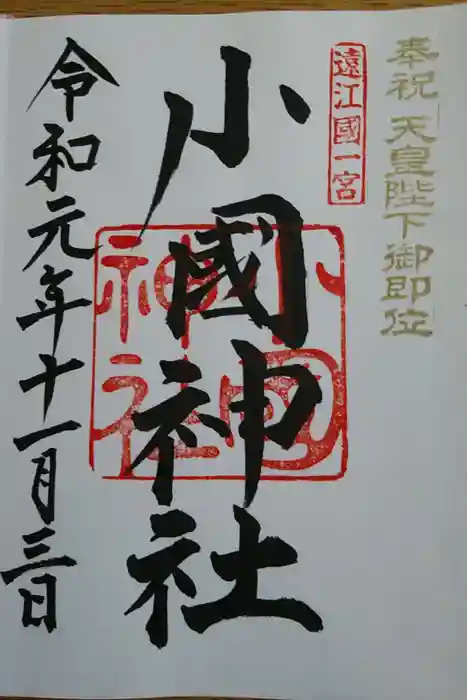 奉祝 天皇陛下御即位
遠江國一宮
小國神社
小國神社
令和元年十一月三日